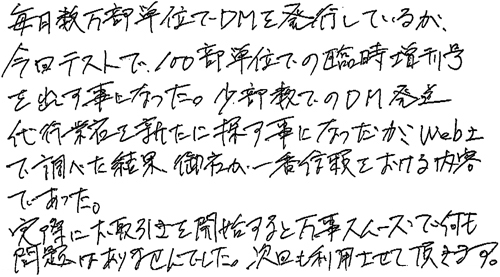 毎月数万部単位でDMを発行しているが、
今回テストで、100部単位での臨時増刊号
を出す事になった。少部数でのDM発送
代行業者を新たに探す事になったが、Web上
で調べた結果、御社が一番信頼をおける内容
であった。
実際にお取引きを開始すると万事スムーズで何も
問題はありませんでした。次回も利用させて頂きます。